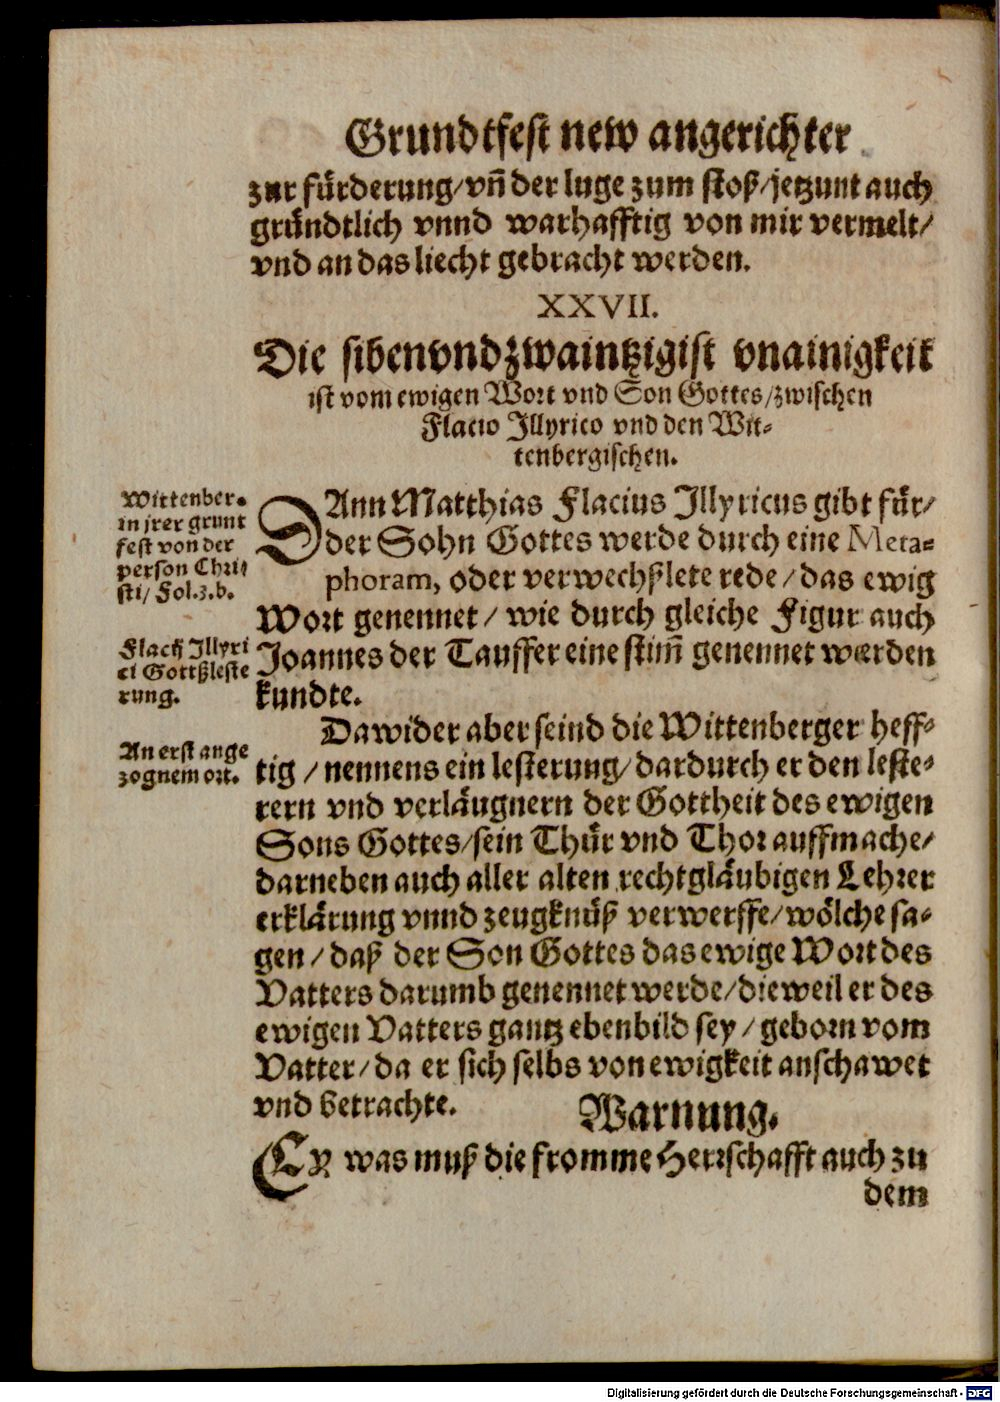 Grundtfest new angerichter
zur fürderung/vñ der luge zum stoß/jetzunt auch
gründtlich vnnd warhafftig von mir vermelt/
vnd an das liecht gebracht werden.
XXVII.
Die sibenvndzwaintzigist vnainigkeit
ist vom ewigen Wort vnd Son Gottes/zwischen
Flacio Illyrico vnd den Wit-
tenbergischen.
Wittenber.
in jrer grunt
fest von der
person Chri-
sti/ Fol.3.b.
DAnn Matthias Flacius Illyricus gibt für/
der Sohn Gottes werde durch eine Meta-
phoram, oder verwechßlete rede/das ewig
Wort genennet/ wie durch gleiche Figur auch
Flacij Illyri
ci Gottßleste
rung.
Joannes der Tauffer eine stim̃ genennet werden
kundte.
Dawider aber seind die Wittenberger heff-
An erst ange
zognem ort.
tig/nennens ein lesterung/dardurch er den leste-
rern vnd verläugnern der Gottheit des ewigen
Sons Gottes/sein Thür vnd Thor auffmache/
darneben auch aller alten rechtgläubigen Lehrer
erklärung vnnd zeugknüß verwerffe/wölche sa-
gen/daß der Son Gottes das ewige Wort des
Vatters darumb genennet werde/dieweil er des
ewigen Vatters gantz ebenbild sey/geborn vom
Vatter/da er sich selbs von ewigkeit anschawet
vnd betrachte.
Warnung.
EY was muß die fromme Herrschafft auch zu
dem
Digitalisierung gefördert durch die Deutsche Forschungsgemeinschaft - DFG